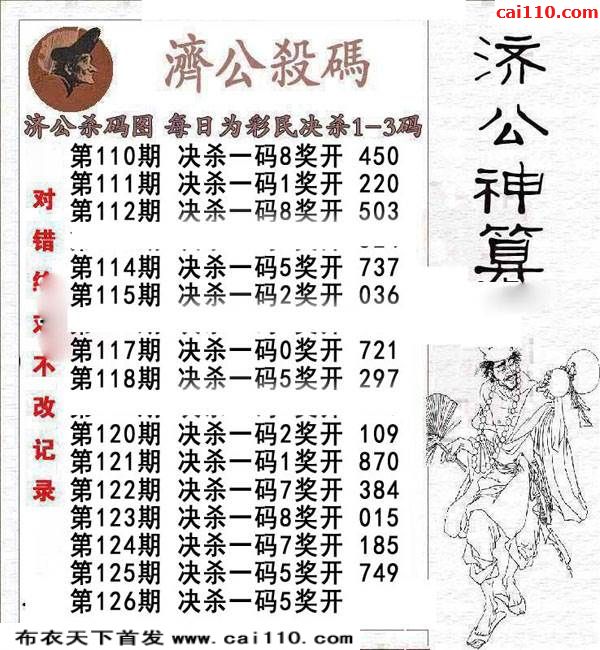 cai110.com
濟公殺碼
济公杀码图 每日为彩民决杀1-3码
第110期 决杀一码8奖开 450
第111期 决杀一码1奖开 220
第112期 决杀一码8奖开 503
第114期 决杀一码5奖开 737
第115期 决杀一码2奖开 036
第117期 决杀一码0奖开 721
第118期 决杀一码5奖开 297
第120期 决杀一码2奖开 109
第121期 决杀一码1奖开 870
第122期 决杀一码7奖开 384
第123期 决杀一码8奖开 015
第124期 决杀一码7奖开 185
第125期 决杀一码5奖开 749
第126期 决杀一码5奖开
对错
不改记录
济公神算
布衣天下首发 www.cai110.com